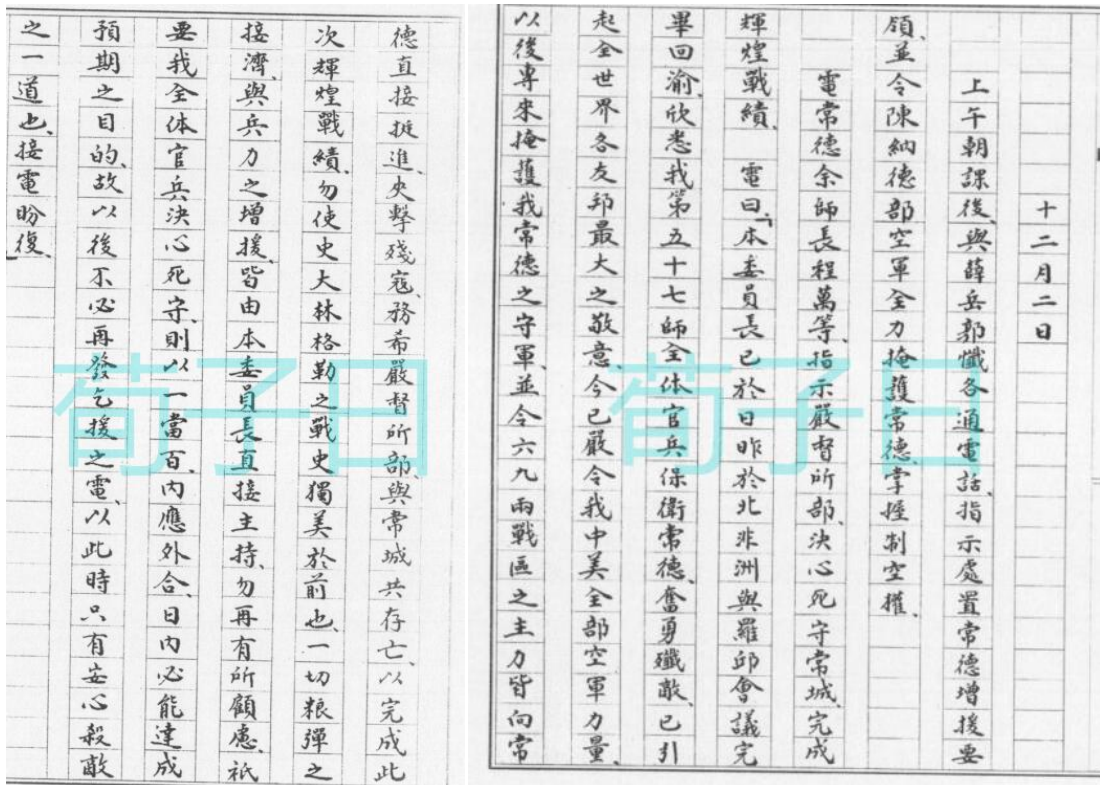 十二月二日
上午朝課後、與薛岳郭懺各通電話、指示處置常德增援要
領、並令陳納德部空軍全力掩護常德、掌握制空權
電常德余師長程萬等、指示嚴督所部、決心死守常城、完成
輝煌戰績 電曰、「本委員長已於日昨於北非洲與羅邱會議完
畢回渝、欣悉我第五十七師全体官兵保衛常德、奮勇殲敵、已引
起全世界各友邦最大之敬意、今已嚴令我中美全部空軍力量、
以後專來掩護我常德之守軍、並令六九兩戰區之主力皆向常
德直接挺進、夾擊殘寇、務希嚴督所部、與常城共存亡、以完成此
次輝煌戰績、勿使史大林格勒之戰史獨美於前也、一切糧彈之
接濟、與兵力之增援、皆由本委員長直接主持、勿再有所顧慮、祇
要我全体官兵決心死守、則以一當百、內應外合、日內必能達成
預期之目的、故以後不必再發乞援之電、以此時只有安心殺敵
之一道也、接電盼復、」
荀子曰
荀子曰